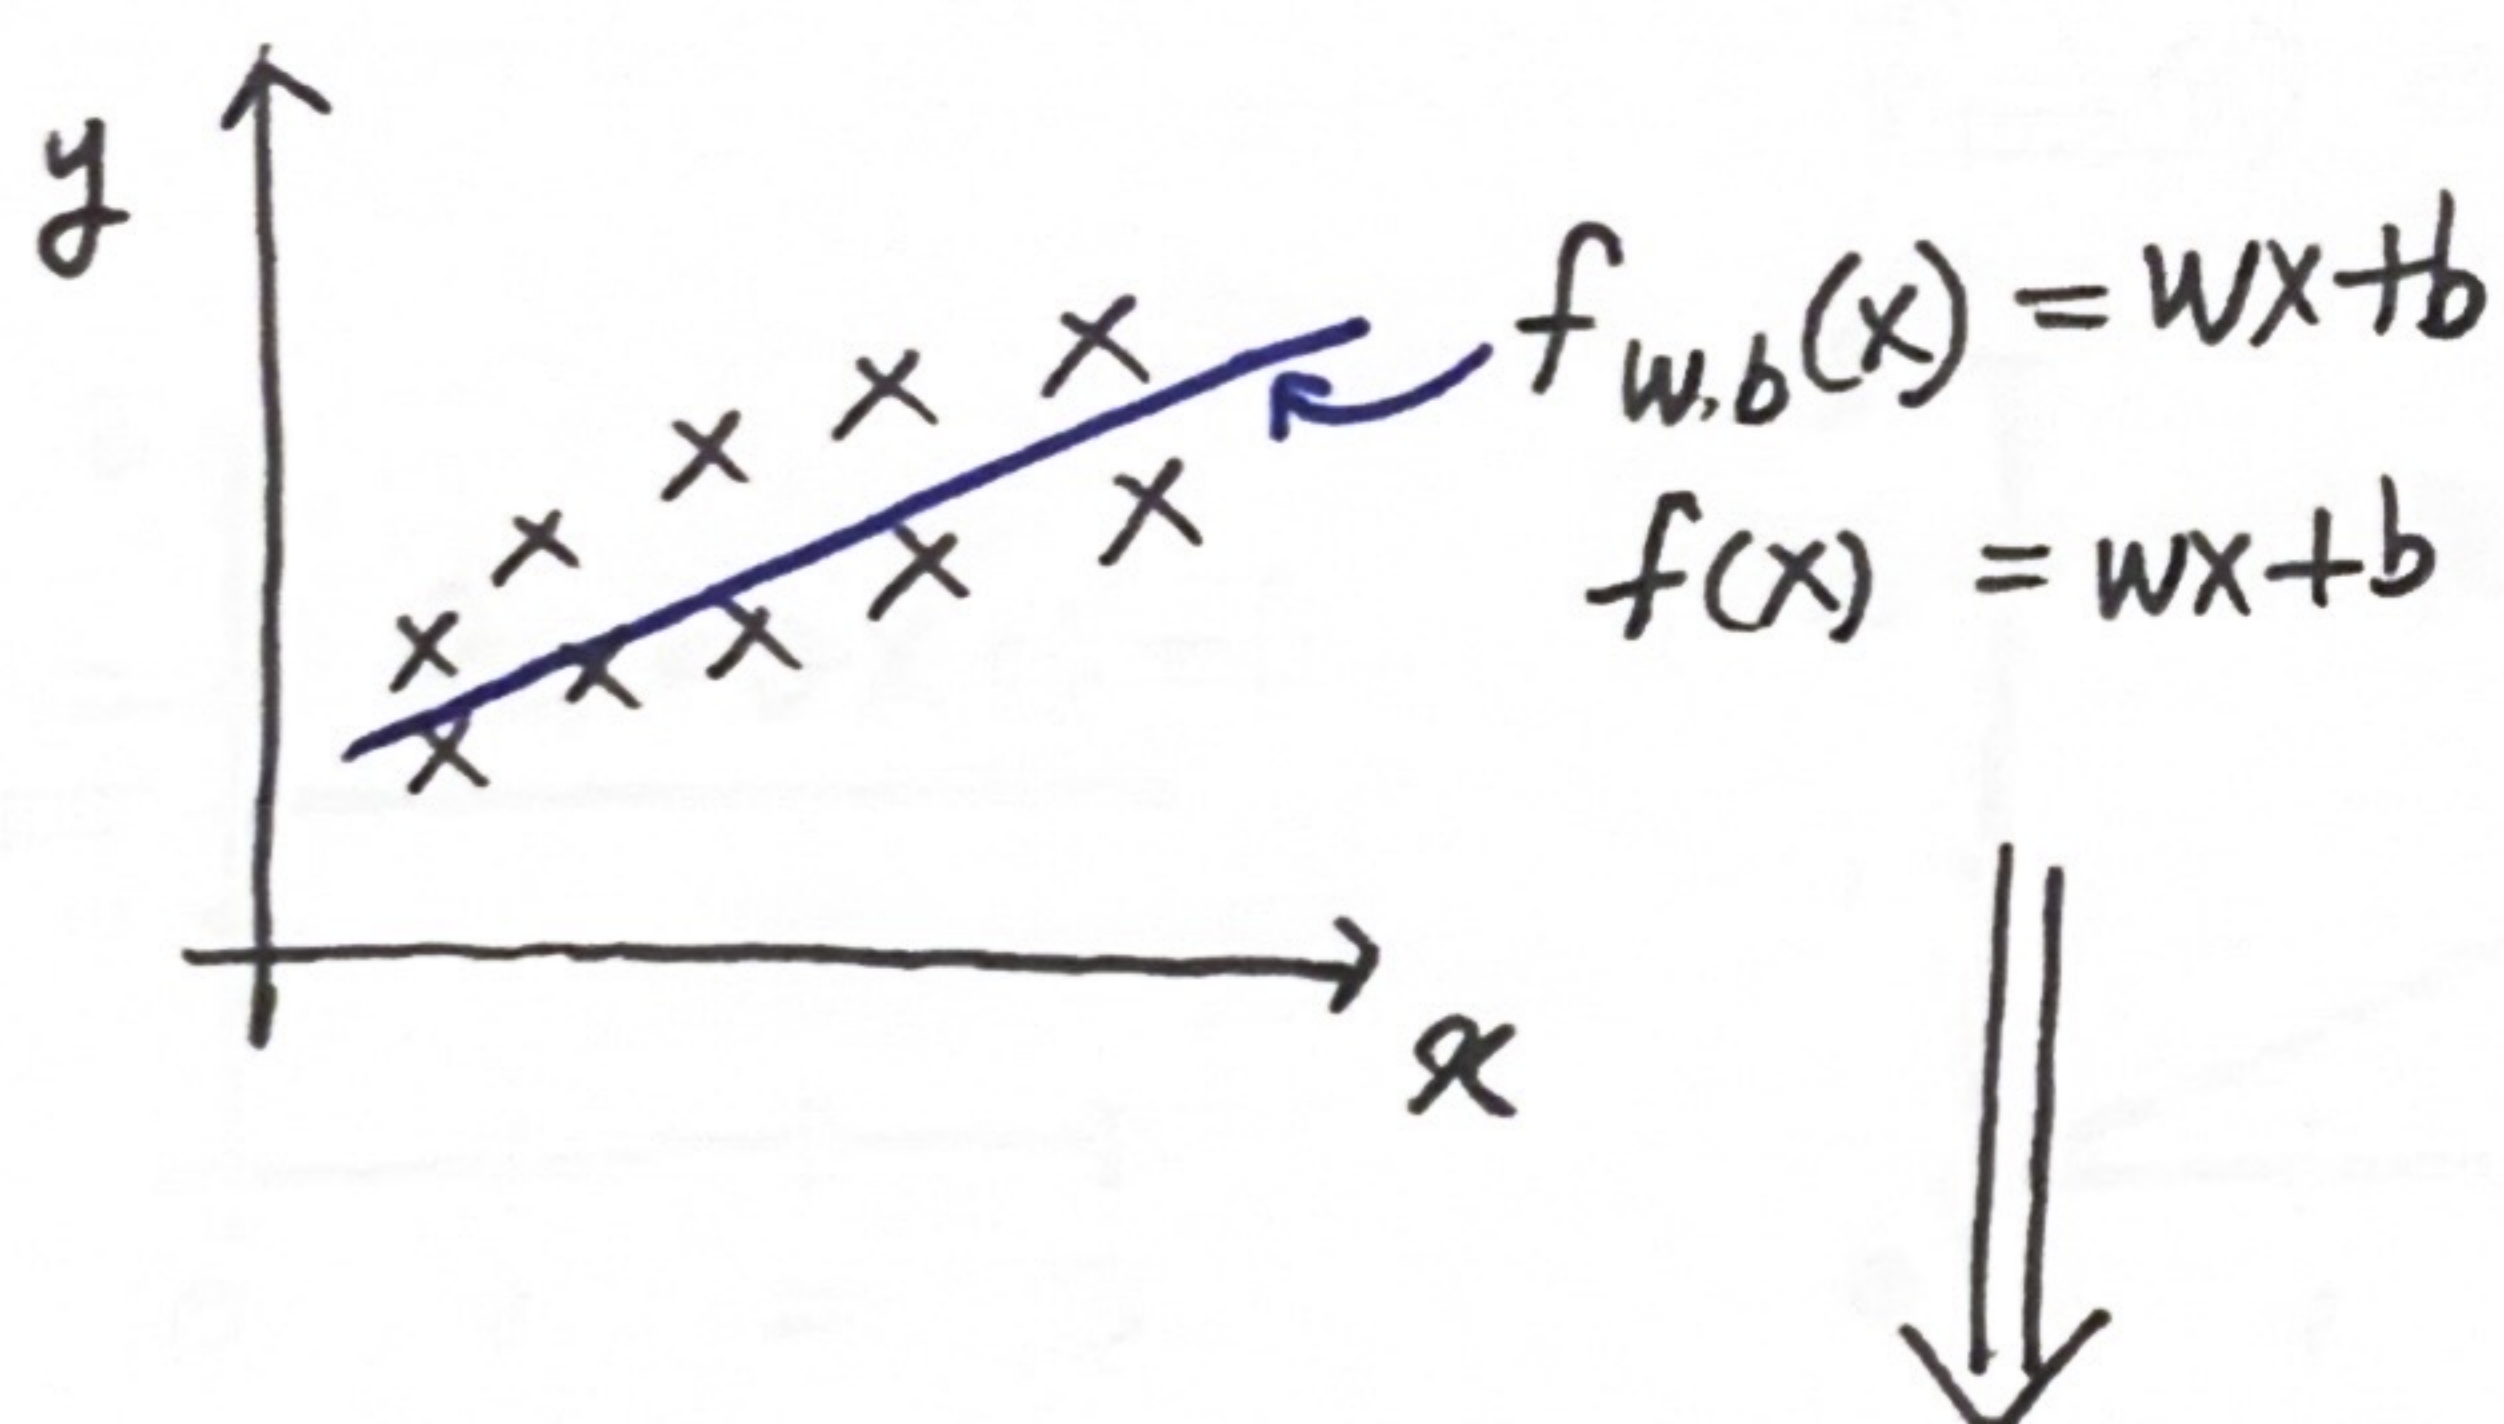 y
f_{w,b}(x) = wx+b
f(x) = wx+b
x